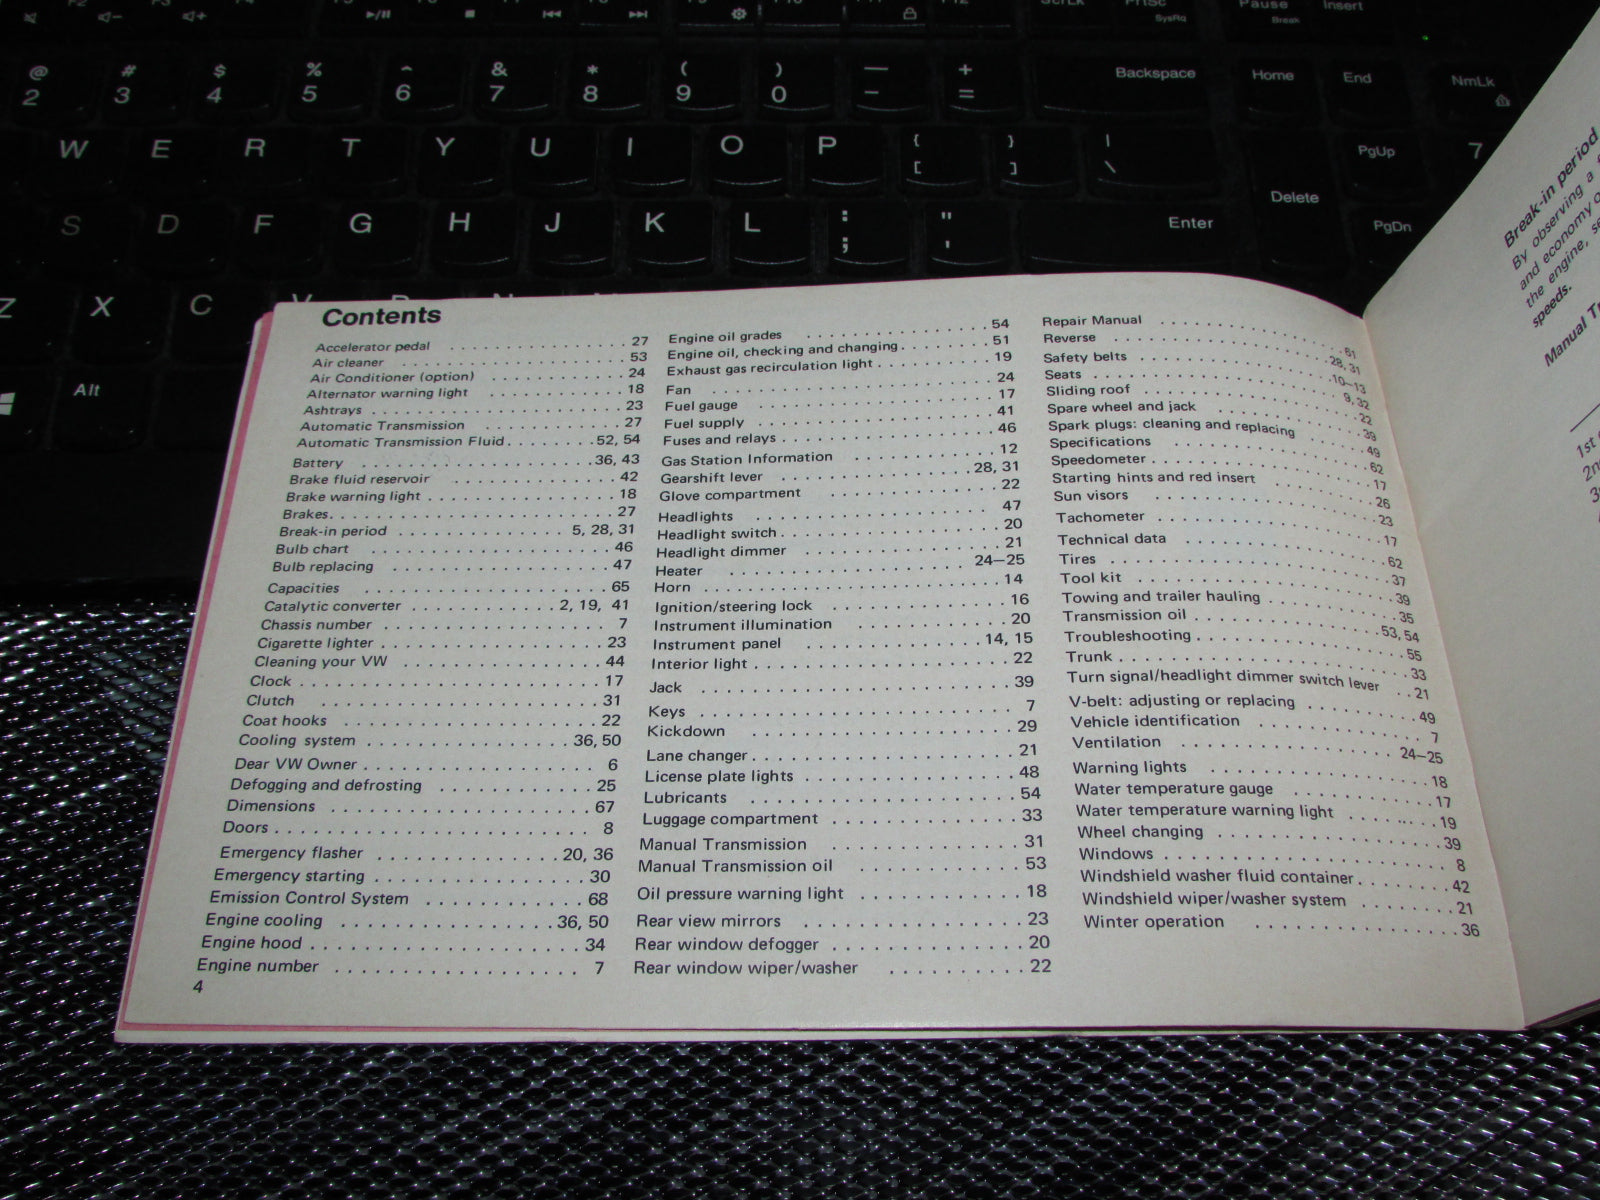 F2
PrtSc
SysRq
Pause
Break
Insert
@ # $ % ^ & * ( ) — +
2 3 4 5 6 7 8 9 0 - =
Backspace
Home
End
NmLk
W E R T Y U I O P { [ } ] | \
PgUp
7
Delete
S D F G H J K L : ; " '
Enter
PgDn
Z X C
Alt
Contents
Accelerator pedal . . . . . 27
Air cleaner . . . . . 53
Air Conditioner (option) . . . . . 24
Alternator warning light . . . . . 18
Ashtrays . . . . . 23
Automatic Transmission . . . . . 27
Automatic Transmission Fluid . . . . . 52, 54
Battery . . . . . 36, 43
Brake fluid reservoir . . . . . 42
Brake warning light . . . . . 18
Brakes . . . . . 27
Break-in period . . . . . 5, 28, 31
Bulb chart . . . . . 46
Bulb replacing . . . . . 47
Capacities . . . . . 65
Catalytic converter . . . . . 2, 19, 41
Chassis number . . . . . 7
Cigarette lighter . . . . . 23
Cleaning your VW . . . . . 44
Clock . . . . . 17
Clutch . . . . . 31
Coat hooks . . . . . 22
Cooling system . . . . . 36, 50
Dear VW Owner . . . . . 6
Defogging and defrosting . . . . . 25
Dimensions . . . . . 67
Doors . . . . . 8
Emergency flasher . . . . . 20, 36
Emergency starting . . . . . 30
Emission Control System . . . . . 68
Engine cooling . . . . . 36, 50
Engine hood . . . . . 34
Engine number . . . . . 7
4
Engine oil grades . . . . . 54
Engine oil, checking and changing . . . . . 51
Exhaust gas recirculation light . . . . . 19
Fan . . . . . 24
Fuel gauge . . . . . 17
Fuel supply . . . . . 41
Fuses and relays . . . . . 46
Gas Station Information . . . . . 12
Gearshift lever . . . . . 28, 31
Glove compartment . . . . . 22
Headlights . . . . . 47
Headlight switch . . . . . 20
Headlight dimmer . . . . . 21
Heater . . . . . 24—25
Horn . . . . . 14
Ignition/steering lock . . . . . 16
Instrument illumination . . . . . 20
Instrument panel . . . . . 14, 15
Interior light . . . . . 22
Jack . . . . . 39
Keys . . . . . 7
Kickdown . . . . . 29
Lane changer . . . . . 21
License plate lights . . . . . 48
Lubricants . . . . . 54
Luggage compartment . . . . . 33
Manual Transmission . . . . . 31
Manual Transmission oil . . . . . 53
Oil pressure warning light . . . . . 18
Rear view mirrors . . . . . 23
Rear window defogger . . . . . 20
Rear window wiper/washer . . . . . 22
Repair Manual . . . . . 61
Reverse . . . . . 28, 31
Safety belts . . . . . 10—13
Seats . . . . . 9, 32
Sliding roof . . . . . 22
Spare wheel and jack . . . . . 39
Spark plugs: cleaning and replacing . . . . . 49
Specifications . . . . . 62
Speedometer . . . . . 17
Starting hints and red insert . . . . . 26
Sun visors . . . . . 23
Tachometer . . . . . 17
Technical data . . . . . 62
Tires . . . . . 37
Tool kit . . . . . 39
Towing and trailer hauling . . . . . 35
Transmission oil . . . . . 53, 54
Troubleshooting . . . . . 55
Trunk . . . . . 33
Turn signal/headlight dimmer switch lever . . 21
V-belt: adjusting or replacing . . . . . 49
Vehicle identification . . . . . 7
Ventilation . . . . . 24—25
Warning lights . . . . . 18
Water temperature gauge . . . . . 17
Water temperature warning light . . . . . 19
Wheel changing . . . . . 39
Windows . . . . . 8
Windshield washer fluid container . . . . . 42
Windshield wiper/washer system . . . . . 21
Winter operation . . . . . 36
Break-in period
By observing a
and economy
the engine,
speeds.
Manual
1st